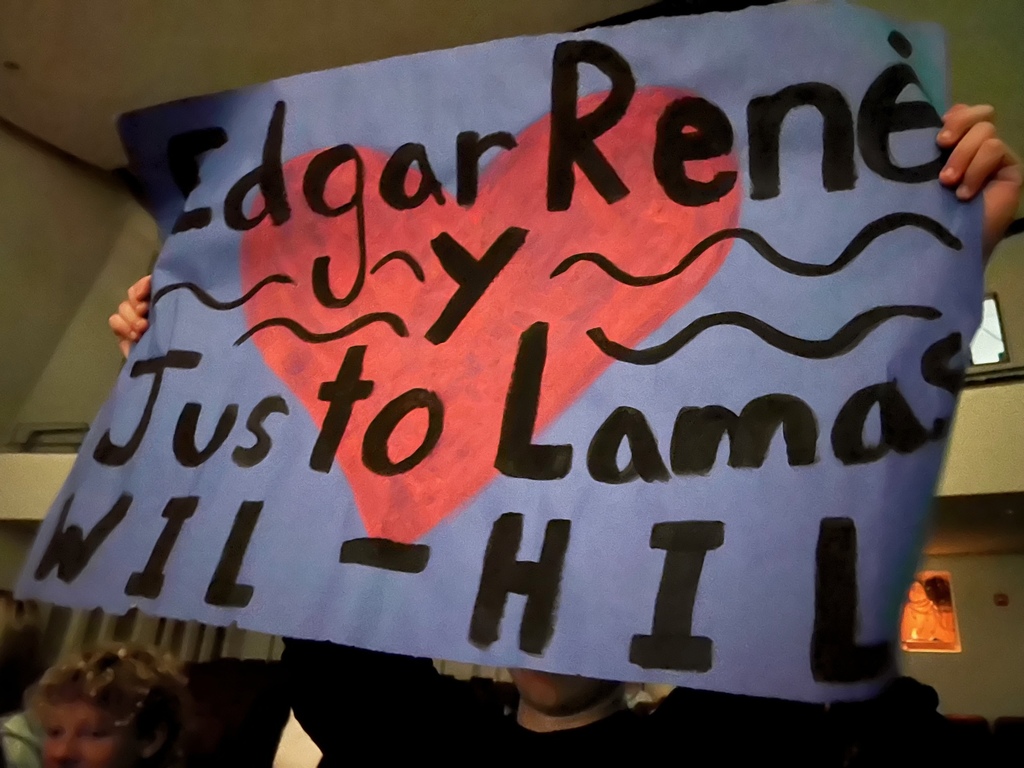 Edgar Renė
y
Justo Lamas
WIL - HIL